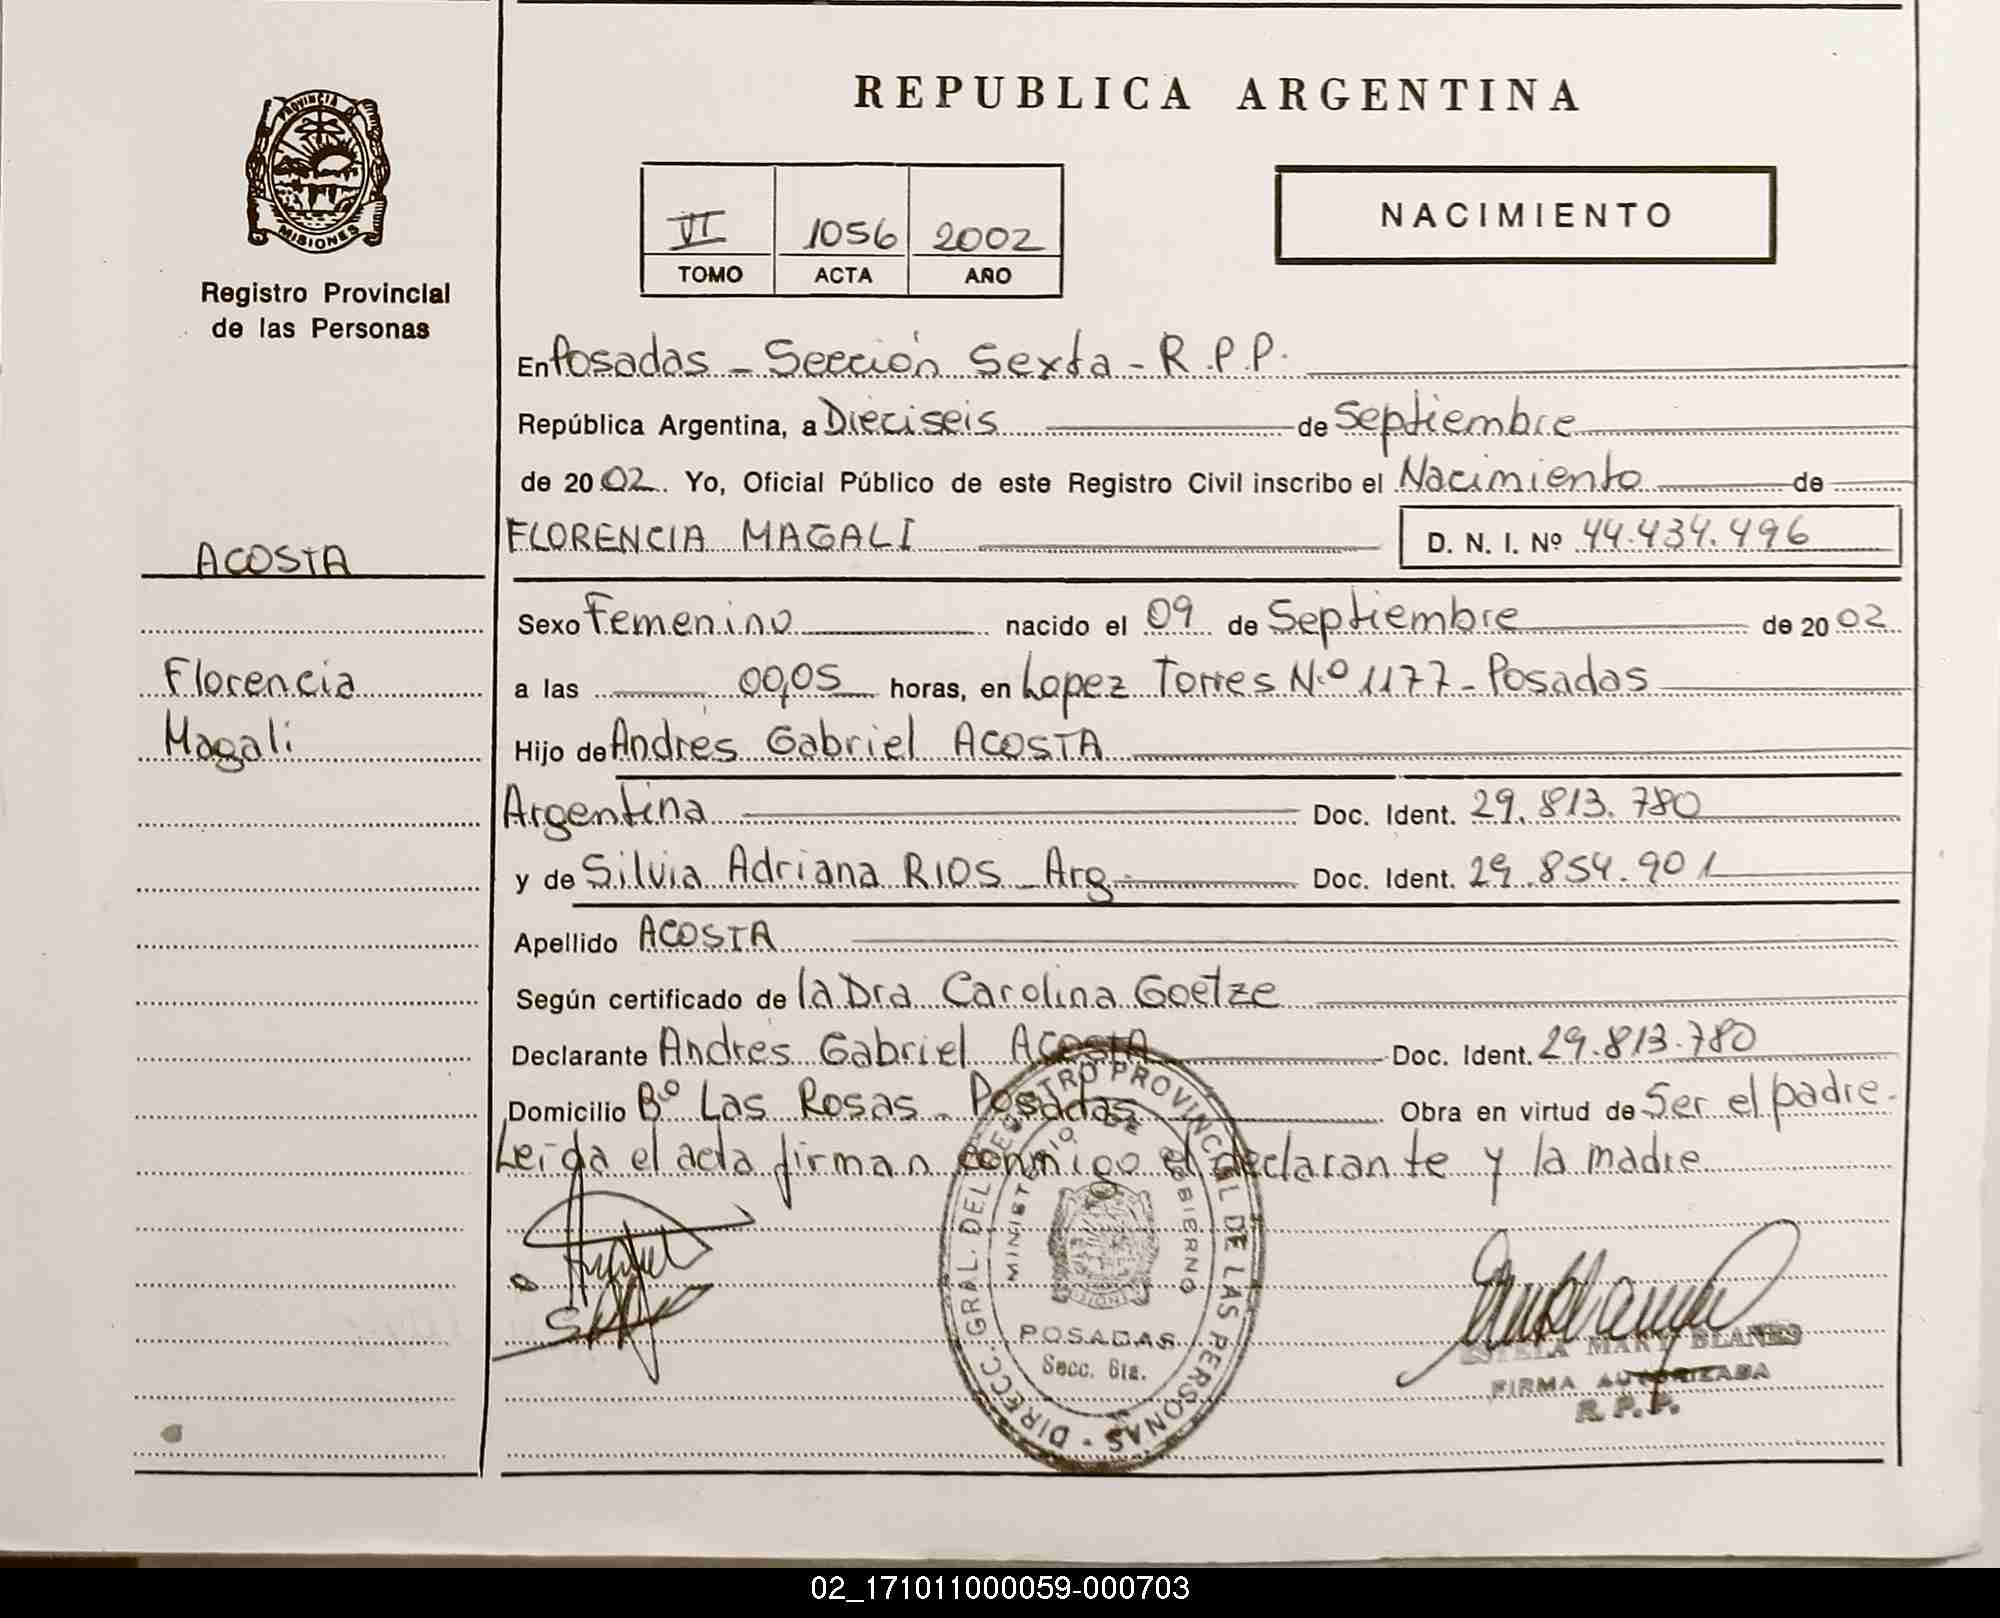 REPUBLICA ARGENTINA
PROVINCIA D
MISIONES
Registro Provincial
de las Personas
VI 1056 2002
TOMO ACTA AÑO
NACIMIENTO
En Posadas - Sección Sexta - R.P.P.
República Argentina, a Dieciseis de Septiembre
de 2002. Yo, Oficial Público de este Registro Civil inscribo el Nacimiento de
FLORENCIA MAGALI D. N. I. Nº 44.434.496
ACOSTA
Florencia
Magali
Sexo Femenino nacido el 09 de Septiembre de 2002
a las 00,05 horas, en Lopez Torres N.º 1177 - Posadas
Hijo de Andres Gabriel ACOSTA
Argentina Doc. Ident. 29.813.780
y de Silvia Adriana RIOS - Arg. Doc. Ident. 29.854.901
Apellido ACOSTA
Según certificado de la Dra Carolina Goetze
Declarante Andres Gabriel ACOSTA Doc. Ident. 29.813.780
Domicilio Bº Las Rosas - Posadas Obra en virtud de Ser el padre.
Leida el acta firman conmigo el declarante y la madre
DIRECC. GRAL. DEL REGISTRO PROVINCIAL DE LAS PERSONAS
MINISTERIO DE GOBIERNO
POSADAS
Secc. 6ta.
ESTELA MARY BLANES
FIRMA AUTORIZADA
R. P. P.
02_171011000059-000703